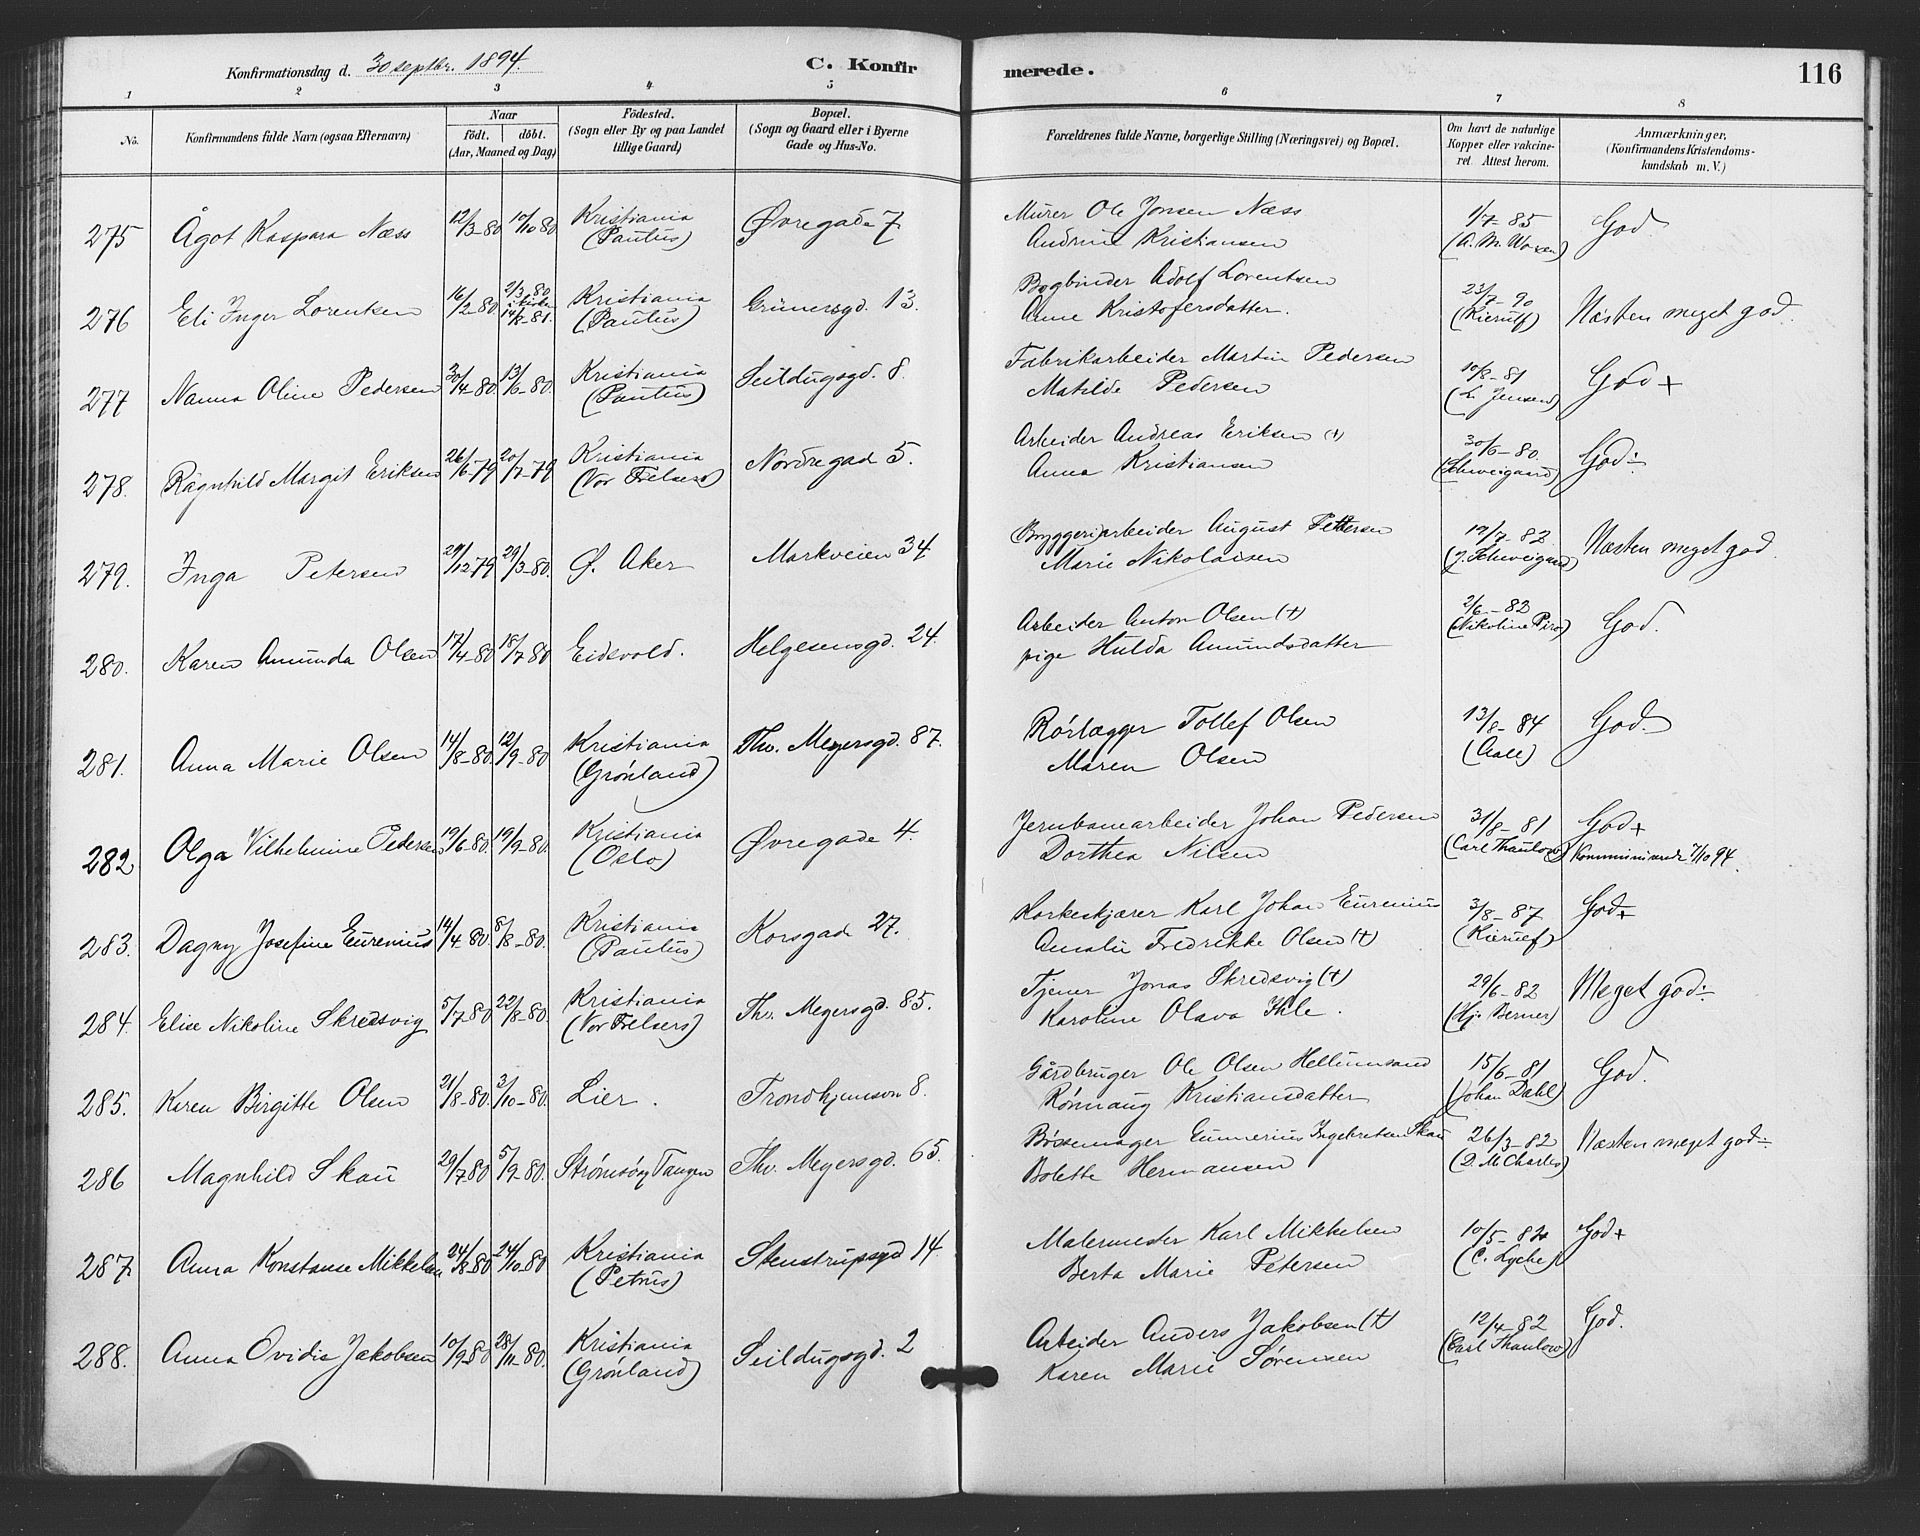 Konfirmationsdag d. 30 septbr. 1894. C. Konfir merede. 116
1 2 3 4 5 6 7 8
No. Konfirmandens fulde Navn (ogsaa Efternavn) Naar födt. döbt. (Aar, Maaned og Dag) Födested. (Sogn eller By og paa Landet tillige Gaard) Bopæl. (Sogn og Gaard eller i Byerne Gade og Hus-No. Forældrenes fulde Navne, borgerlige Stilling (Næringsvei) og Bopæl. Om havt de naturlige Kopper eller vakcineret. Attest herom. Anmærkninger, (Konfirmandens Kristendomskundskab m. V.)
275 Ågot Kaspara Næss 12/3-80 10/10 80 Kristiania (Paulus) Øvregade 7. Murer Ole Jonsen Næss 1/7-85 God.
Andrine Kristiansen (A. M. Woxen)
276 Eli Inger Lorentsen 16/2-80 2/3-80 i kirken 14/8-81. Kristiania (Paulus) Grünersgd. 13. Bogbinder Adolf Lorentsen 23/7-90 Næsten meget god.
Anne Kristofersdatter. (Kierulf)
277 Nanna Oline Pedersen 30/4-80 13/6-80. Kristiania (Paulus) Seildugsgd. 8. Fabrikarbeider Martin Pedersen 10/8-81 God +
Matilde Pedersen (L. Jensen)
278. Ragnhild Margit Eriksen 26/6-79 20/7-79 Kristiania (Vor Frelsers) Nordregad 5. Arbeider Andreas Eriksen (+) 30/6-80. God÷
Anna Kristiansen (Schweigaard)
279. Inga Petersen 29/12 79 29/3-80. Ø. Aker Markveien 34. Bryggeriarbeider August Pettersen 19/7-82 Næsten meget god.
Marie Nikolaisen (J. Schweigaard)
280. Karen Amunda Olsen 17/4-80 18/7-80 Eidsvold. Helgesensgd. 24. Arbeider Anton Olsen (+) 2/6-82 God.
pige Hulda Amundsdatter (Nikoline Piro)
281. Anna Marie Olsen 14/8-80. 12/9-80 Kristiania (Grønland) Thv. Meyersgd. 87. Rørlægger Tollef Olsen 13/8-84 God.
Maren Olsen (Aall)
282 Olga Vilhelmine Pedersen 19/6-80. 19/9-80. Kristiania (Oslo) Øvregade 4. Jernbanearbeider Johan Pedersen 31/8-81 God +
Dorthea Nilsen (Carl Thaulow) Kommunicerede 7/10 94.
283. Dagny Josefine Eurenius 14/4-80. 8/8-80. Kristiania (Paulus) Korsgad 27. Korkeskjærer Karl Johan Eurenius 3/8-87 God+
Amalie Fredrikke Olsen (+) (Kierulf)
284. Elise Nikoline Skredsvig 5/7-80 22/8-80. Kristiania (Vor Frelsers) Th. Meyersgd. 85. Tjener Jonas Skredsvig (+) 29/6-82 Meget god÷
Karoline Olava Ihle. (Hj. Berner)
285. Karen Birgitte Olsen 21/8-80. 3/10-80. Lier. Trondhjemsvn 8. Gårdbruger Ole Olsen Hellumsand 15/6-81 God.
Rønnaug Kristiansdatter (Johan Dahl)
286 Magnhild Skau 29/7 80 5/9-80. Strømsø, Tangen Thv. Meyersgd. 65. Bøssemager Gunnerius Ingebretsen Skau 26/3-82 Næsten meget god÷
Bolette Hermansen (D. McCharles)
287. Anna Konstanse Mikkelsen 24/8-80 24/10-80 Kristiania (Petrus) Stenstrupsgd 14. Malermester Karl Mikkelsen 10/5-82 God+
Berta Marie Petersen (C. Lyche)
288. Anna Ovidis Jakobsen 10/9-80 28/11-80. Kristiania (Grønland) Seildugsgd. 2 Arbeider Anders Jakobsen (+) 12/4-82 God.
Karen Marie Sørensen (Carl Thaulow)